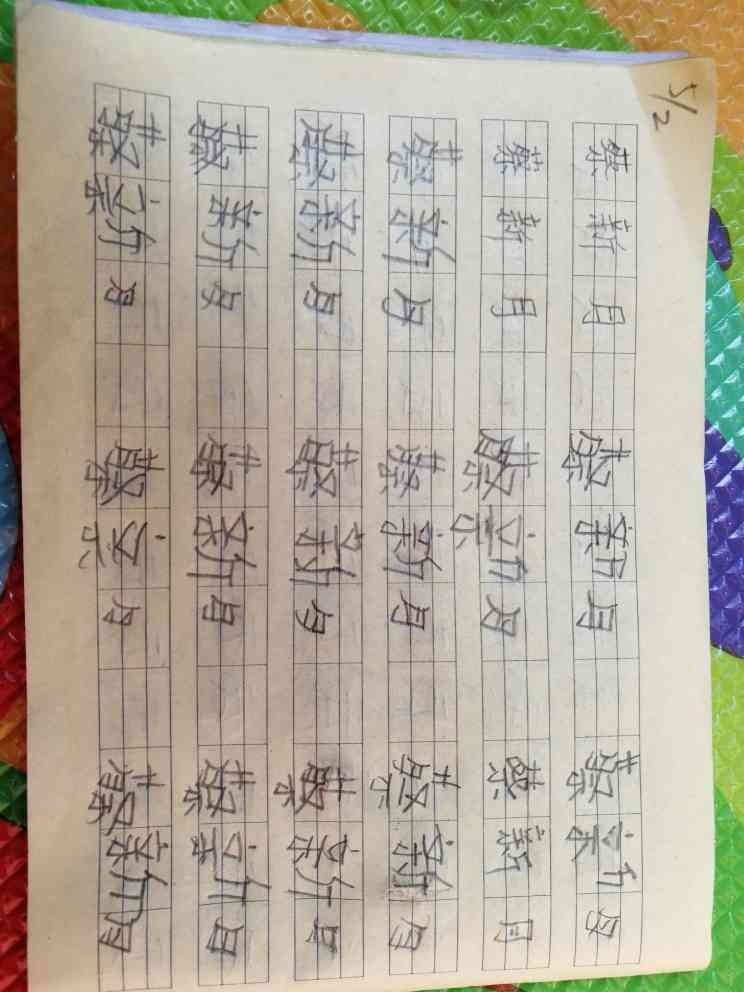 5/2
蔡新月 蔡新月 蔡新月
蔡新月 蔡新月 蔡新月
蔡新月 蔡新月 蔡新月
蔡新月 蔡新月 蔡新月
蔡新月 蔡新月 蔡新月
蔡新月 蔡月 蔡新月